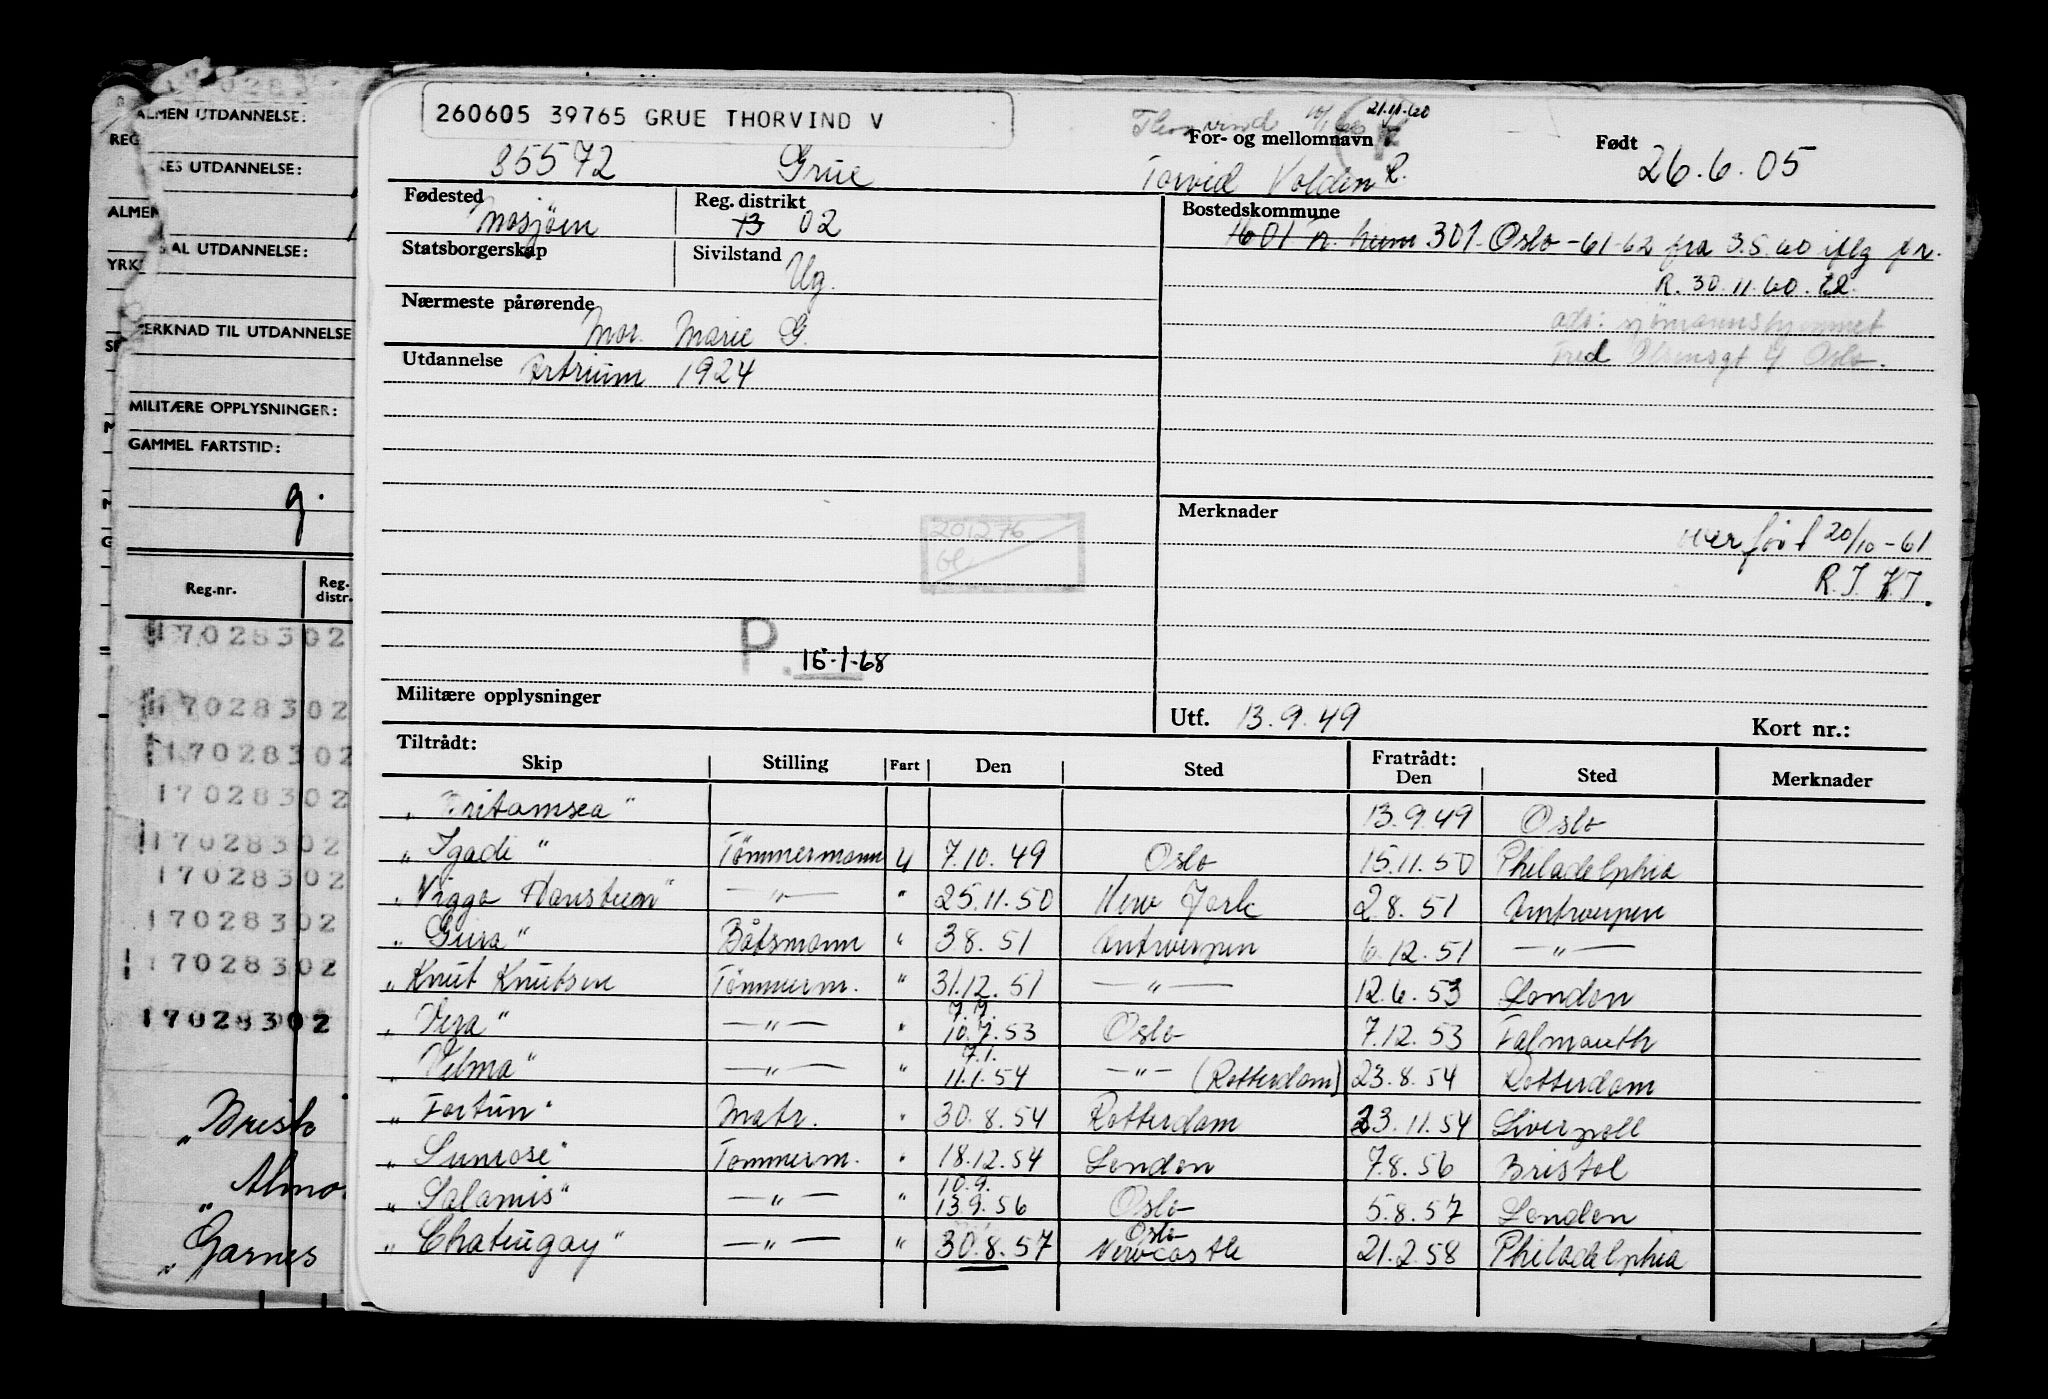 ALMEN UTDANNELSE:
REG
KES UTDANNELSE:
ALMEN
AL UTDANNELSE:
YRKE
MERKNAD TIL UTDANNELSE
MILITÆRE OPPLYSNINGER:
GAMMEL FARTSTID:
g.
Reg.nr. Reg. distr.
17028302
17028302
17028302
17028302
17028302
17028302
17028302
17028302
17028302
Garnes
260605 39765 GRUE THORVIND V
21.11.60
Thorvind
For- og mellomnavn
Født
85572 Grue Torvid Volden R. 26.6.05
Fødested Mosjøen
Reg. distrikt 13 02
Bostedskommune
1601 Tr. heim 301 Oslo -61-62 fra 3.5.60 iflg pr.
R. 30.11.60.
Statsborgerskap
Sivilstand Ug.
Nærmeste pårørende Mor. Marie G.
adr: sjømannshjemmet
Fred Olsensgt 4 Oslo.
Utdannelse Artium 1924
201276
Merknader
overført 20/10-61
P. 15-1-68
Militære opplysninger
Utf. 13.9.49
Kort nr.:
Tiltrådt: Fratrådt:
Skip Stilling Fart Den Sted Den Sted Merknader
"Britamsea" 13.9.49 Oslo
"Igadi" Tömmermann U 7.10.49 Oslo 15.11.50 Philadelphia
"Viggo Hansteen" —"— " 25.11.50 New York 2.8.51 Antwerpen
"Gura" Båtsmann " 3.8.51 Antwerpen 6.12.51 —"—
"Knut Knutsen Tömmerm. " 31.12.51 —"— 12.6.53 London
"Vera" —"— " 7.7. 10.7.53 Oslo 7.12.53 Falmouth
"Velma" —"— " 7.1. 11.1.54 —"— (Rotterdam) 23.8.54 Rotterdam
"Fortun" Matr. " 30.8.54 Rotterdam 23.11.54 Liverpoll
"Sunrose" Tømmerm. " 18.12.54 London 7.8.56 Bristol
"Salamis" —"— " 10.9. 13.9.56 Oslo 5.8.57 London
"Chateugay" —"— " 30.8.57 Oslo Newcastle 21.2.58 Philadelphia